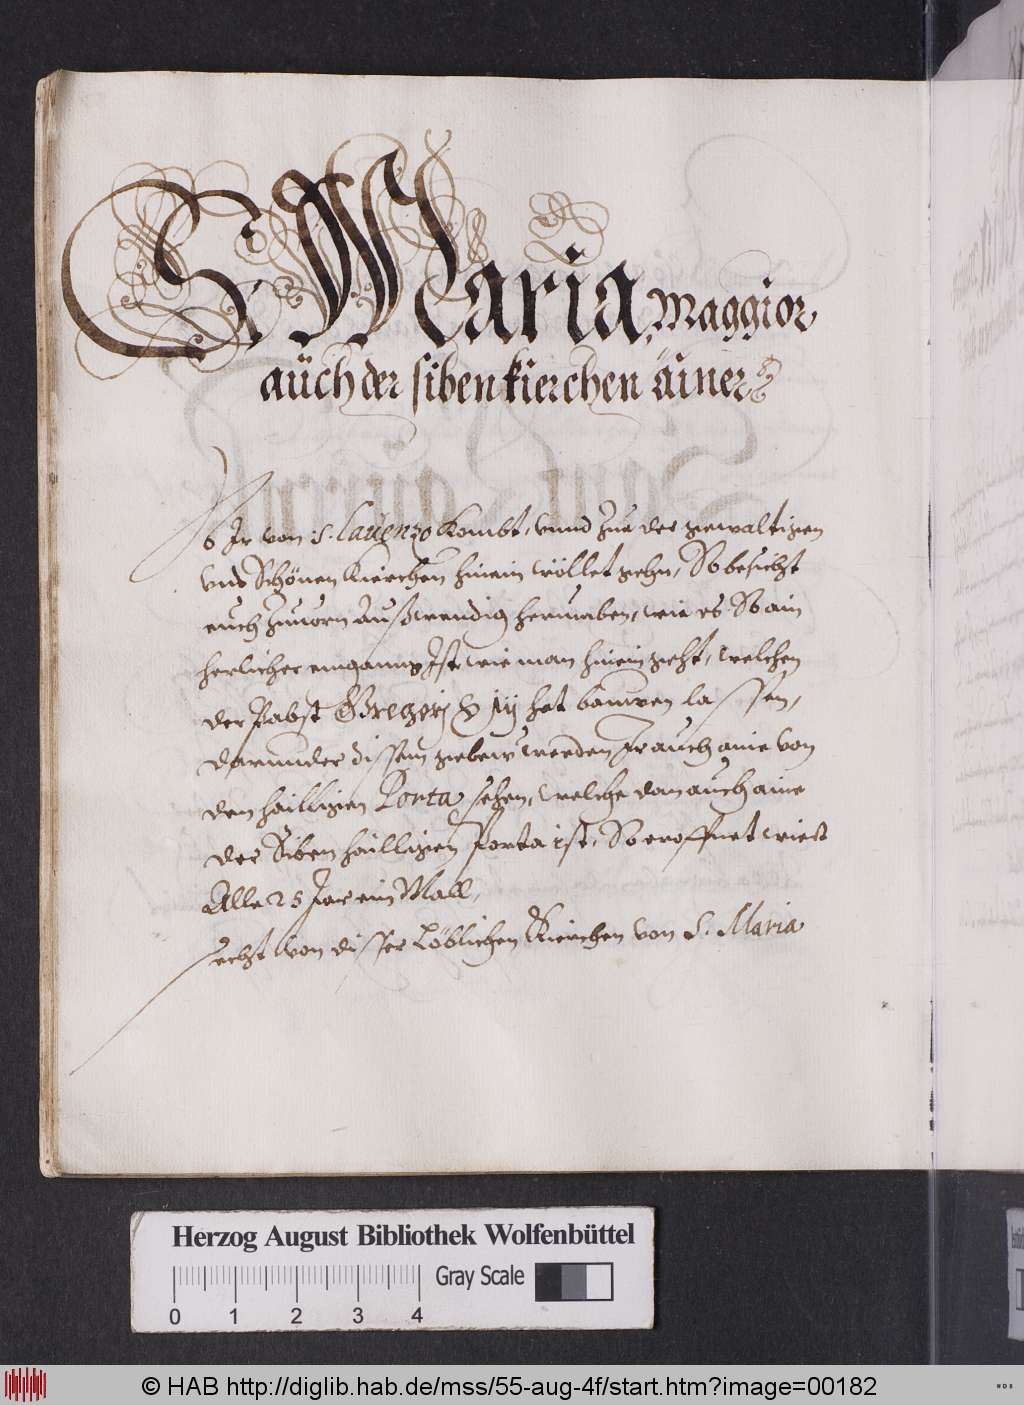 S. Maria, Maggior,
auch der siben kierchen ainer
So Ir von S. Laurenzo kombt, vnnd zue der gewaltigen
vnd Schönen Kierchen hinein wöllet gehn, So besicht
euch zuuorn Außwendig herumben, wie es So ain
herlicher einganng Ist, wie man hinein geht, welchen
der Pabst Gregorj X iij hat bauwen lassen,
darunnder dissem werden Ir auch aine von
den hailligen Porta sehen, welche dan auch aine
der Siben hailligen Porta ist, So eroffnet wiert
Alle 25 Jar ein Mall,
von disser Löblichen Kierchen von S. Maria
Herzog August Bibliothek Wolfenbüttel
Gray Scale
0 1 2 3 4
© HAB http://diglib.hab.de/mss/55-aug-4f/start.htm?image=00182